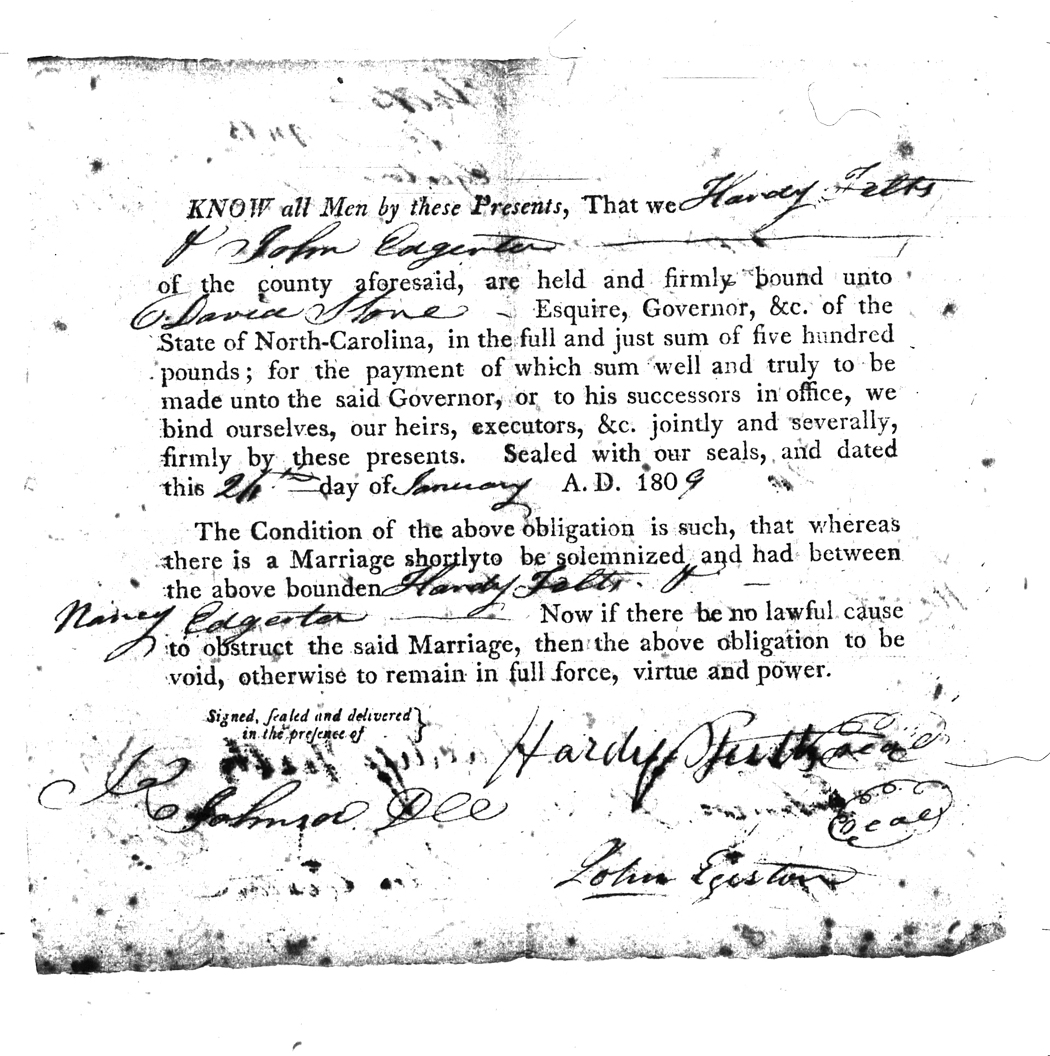 KNOW all Men by these Presents, That we Hardy Fetts
& John Edgerton
of the county aforesaid, are held and firmly bound unto
David Stone Esquire, Governor, &c. of the
State of North-Carolina, in the full and just sum of five hundred
pounds; for the payment of which sum well and truly to be
made unto the said Governor, or to his successors in office, we
bind ourselves, our heirs, executors, &c. jointly and severally,
firmly by these presents. Sealed with our seals, and dated
this 26th day of January A. D. 1809
The Condition of the above obligation is such, that whereas
there is a Marriage shortlyto be solemnized and had between
the above bounden Hardy Fetts &
Nancy Edgerton Now if there be no lawful cause
to obstruct the said Marriage, then the above obligation to be
void, otherwise to remain in full force, virtue and power.
Signed, sealed and delivered
in the presence of
Hardy Seal
Johnson Seal
John Egeston